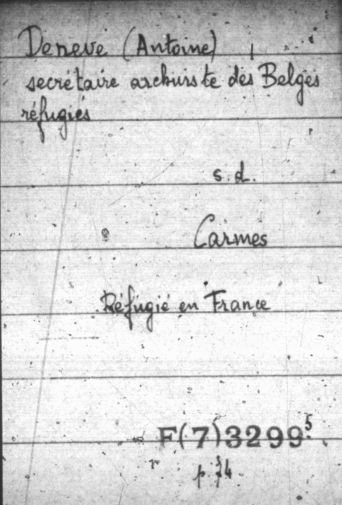 Deneve (Antoine)
secrétaire archiviste des Belges
réfugiés
s.d.
Carmes
Réfugié en France
F(7)3299⁵
p. 74